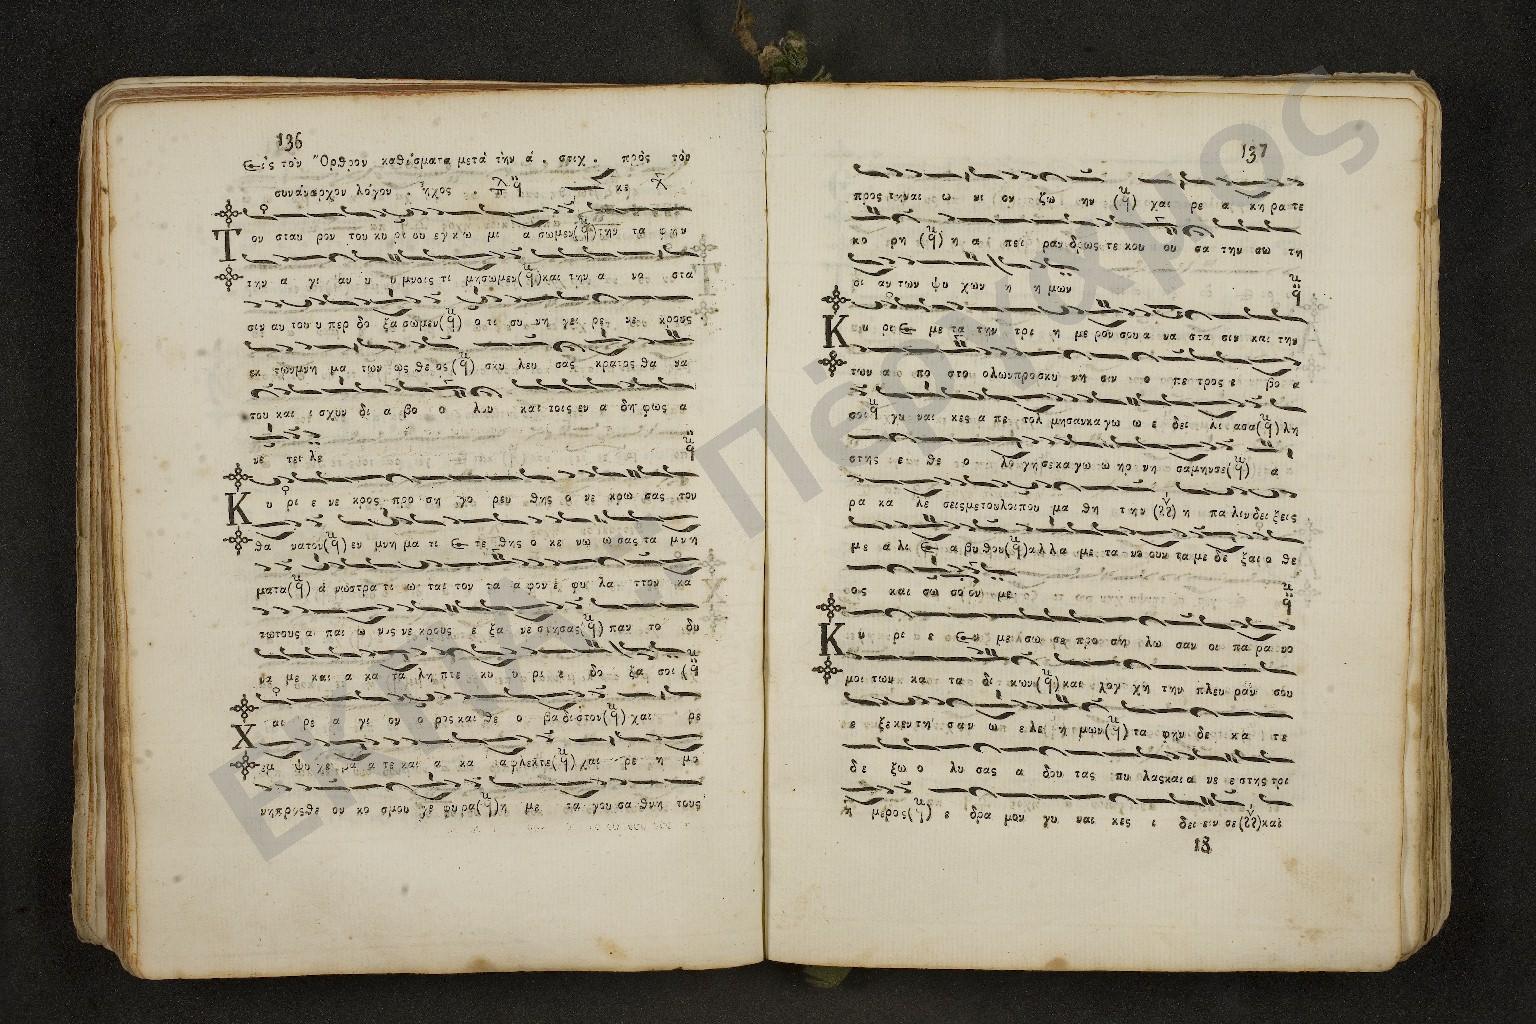 136
Εἰς τὸν Ὄρθρον καθίσματα μετὰ τὴν ά. στιχ. πρὸς τὸν
συνάναρχον λόγον. ἦχος. κε
Τ ον σταυ ρον του κυ ρι ου εγ κω μι α σωμεν την τα φην
την α γι αν υ υ μνοις τι μησωμεν και την α να στα
σιν αυ του υ περ δο ξα σωμεν ο τι συ νη γει ρε νε κρους
εκ των μνη μα των ως θε ος σκυ λευ σας κρατος θα να
του και ι σχυν δι α βο ο λου και τοις εν α δη φως α
νε τει λε
Κ υ ρι ε νε κρος προ ση γο ρευ θης ο νε κρω σας τον
θα νατον εν μνη μα τι ε τε θης ο κε νω ω σας τα μνη
ματα ά νω στρα τι ω ται τον τα α φον ε φυ λα ττον κα
τω τους α παι ω νος νε κρους ε ξα νε στησας παν το δυ
να με και α κα τα λη πτε κυ υ ρι ε δο ξα σοι
Χ αι ρε α γι ον ο ρος και θε ο βα διστον χαι ρε
εμ ψυ χε βα α τε και α κα τα φλεκτε χαι ρε η μο
νη προς θε ον κο σμου γε φυρα η με τα γουσα θνη τους
137
προς την αι ω νι ον ζω ην χαι ρε α κη ρα τε
κο ρη η α πει ραν δρως τε κου ου σα την σω τη
ρι αν των ψυ χων η η μων
Κ υ ρι ε με τα την τρι η με ρον σου α να στα σιν και την
των α πο στο ολων προσκυ νη σιν ο πε τρος ε βο α
σοι γυ ναι κες α πε τολ μησαν καγω ω ε δει λι ασα λη
στης ε θε ο λο γησε καγω ω ηρ νη σαμην σε α
ρα κα λε σεις με του λοιπου μα θη την η πα λιν δει ξεις
με α λι ε α βυ θου αλλα με τα νο ουν τα με δε ξαι ο θε
ος και σω σο ον με
Κ υ ρι ε εν με ε σω σε προ ση λω σαν οι πα ρα νο
μοι των κα τα δι κων και λογ χη την πλευ ραν σου
ε ξε κεν τη σαν ω ε λε η μων τα φην δε κα τε
δε ξω ο λυ σας α δου τας πυ λας και α νε ε στης τρι
η μερος ε δρα μον γυ ναι κες ι δει ειν σε και
18
Εκτ. Πέργαμος